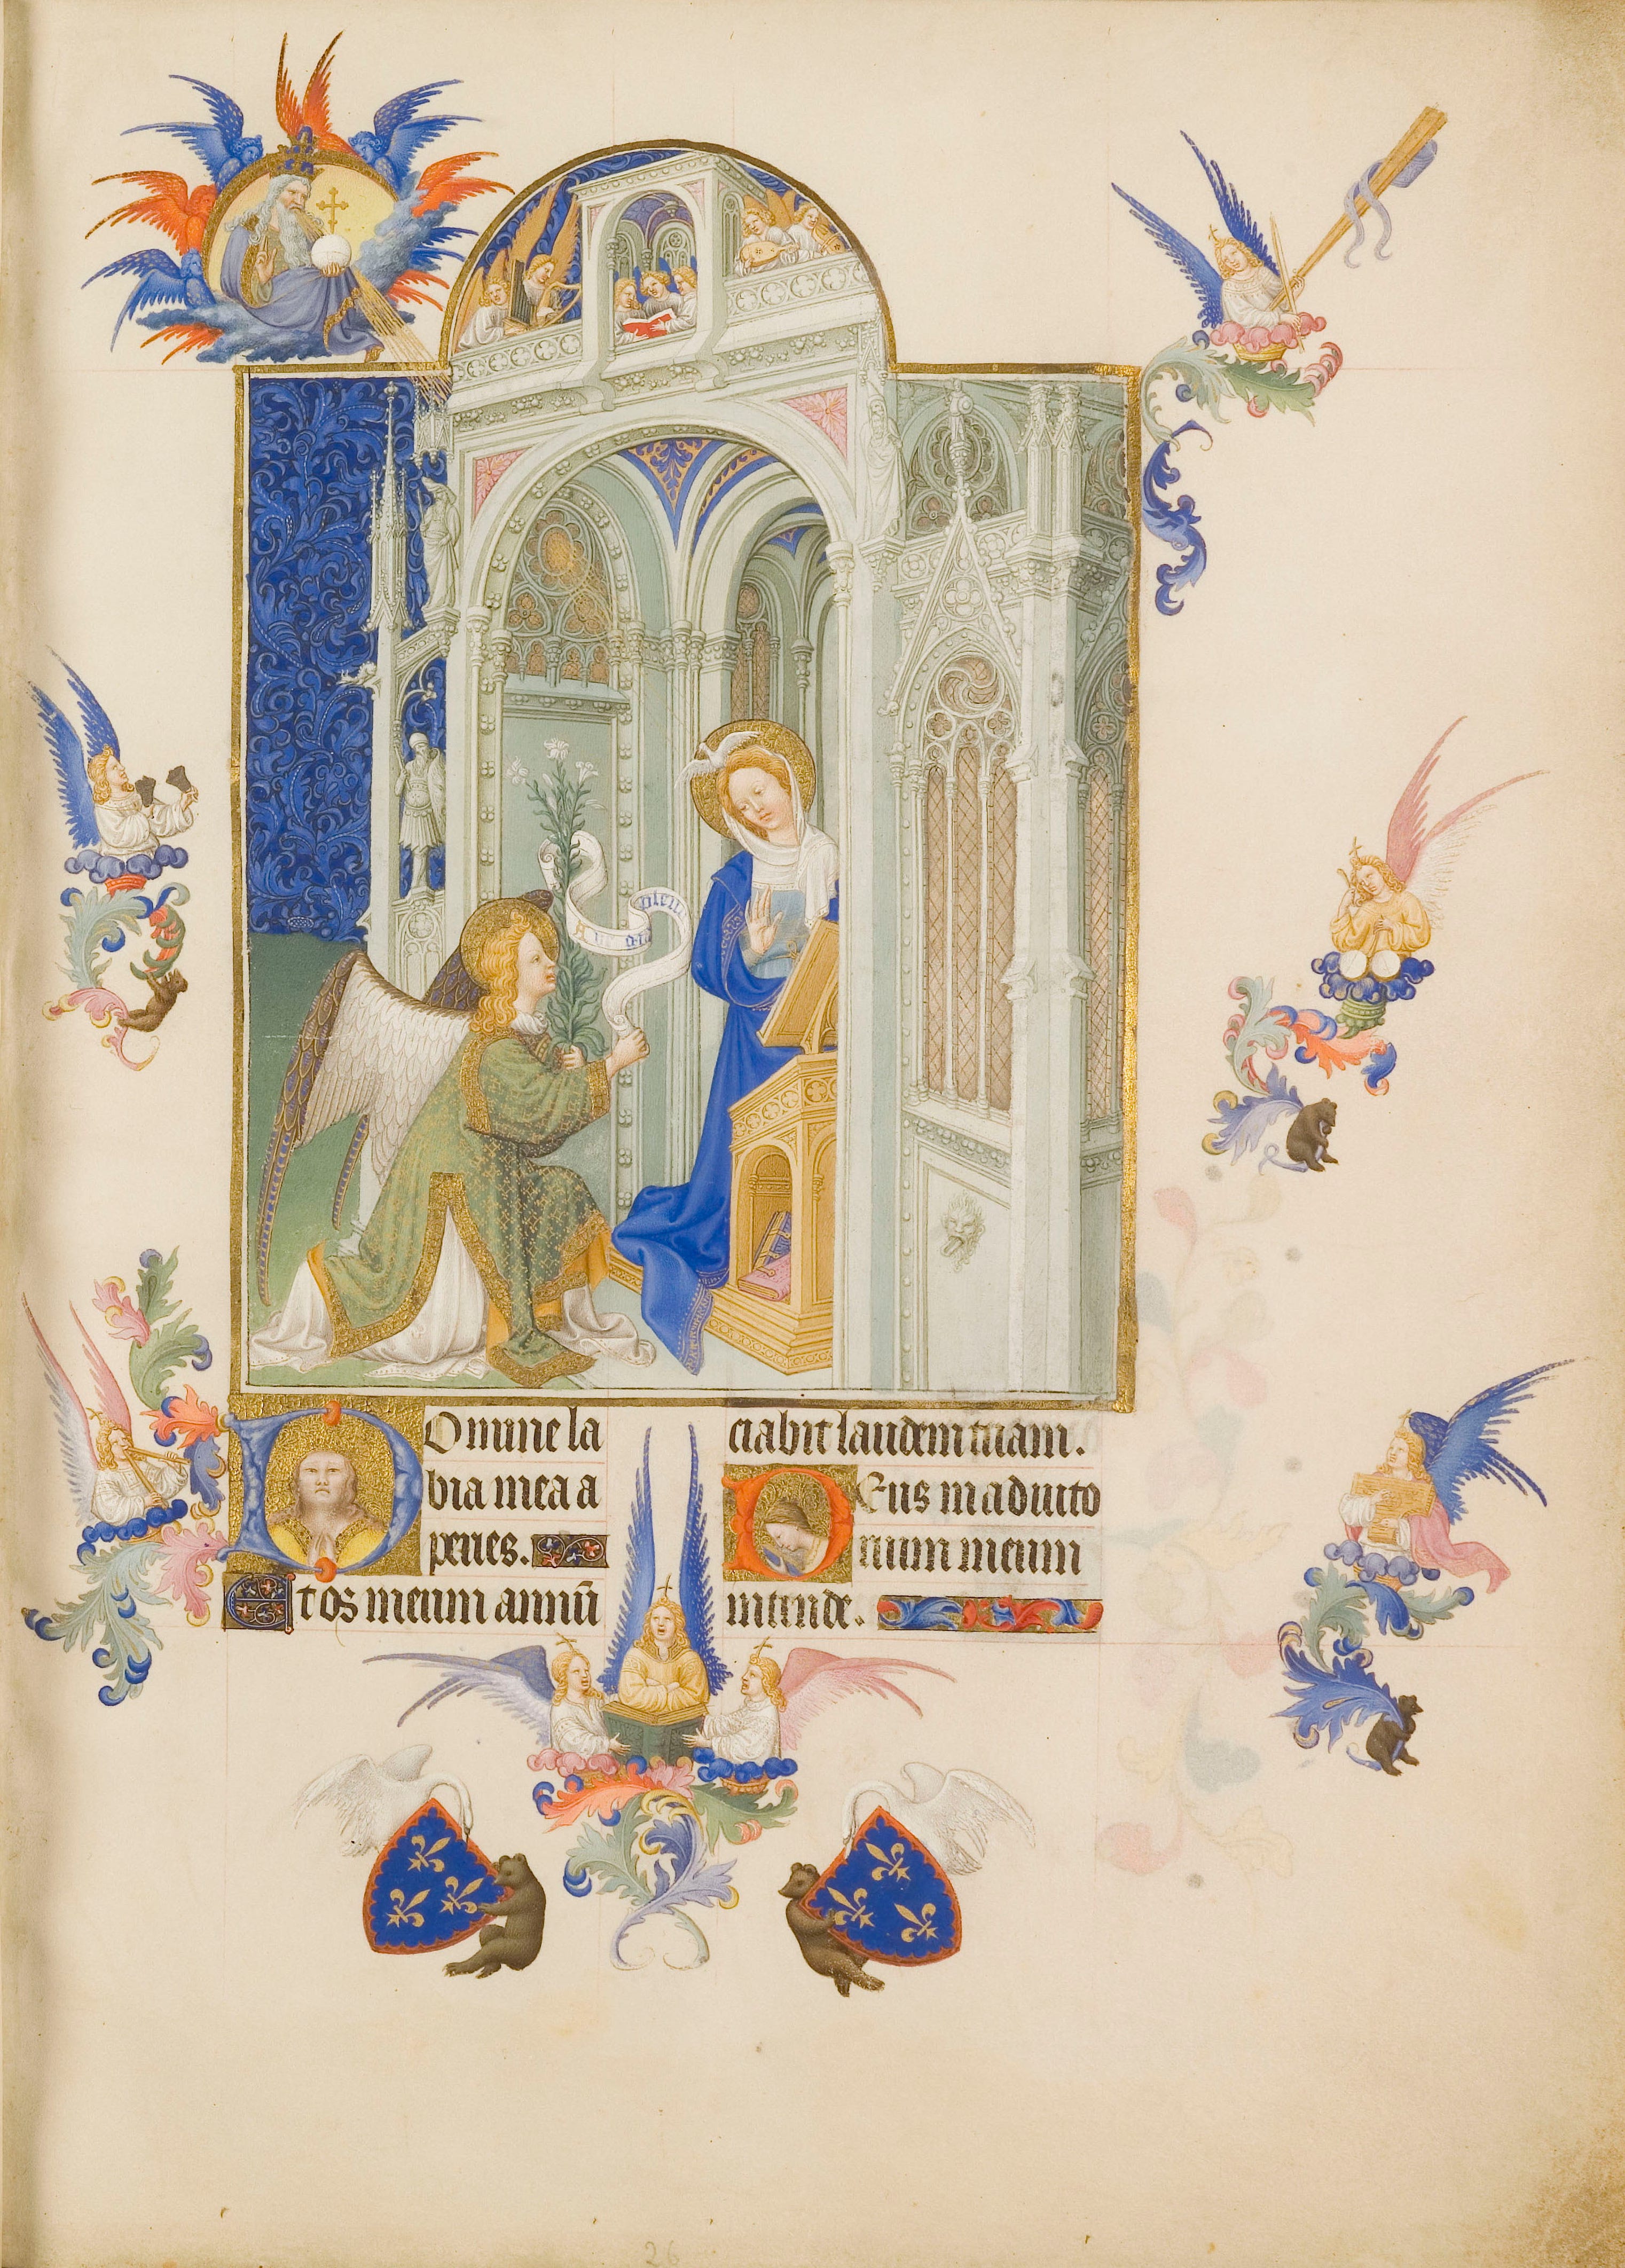 Domine la
bia mea a
peries.
Et os meum annū
ciabit laudem tuam.
Deus in adiuto
rium meum
intende.
26